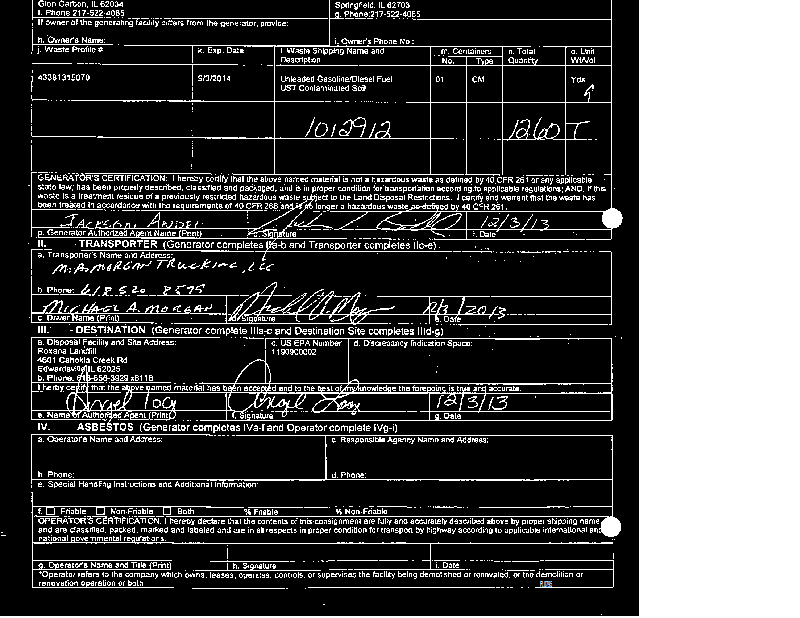 Glen Carbon, IL 62034 Springfield, IL 62703
f. Phone: 217-522-4085 g. Phone: 217-522-4085
If owner of the generating facility differs from the generator, provide:
h. Owner's Name: i. Owner's Phone No.:
j. Waste Profile # k. Exp. Date l. Waste Shipping Name and Description m. Containers No. Type n. Total Quantity o. Unit Wt/Vol
43381315070 9/3/2014 Unleaded Gasoline/Diesel Fuel 01 CM Yds
UST Contaminated Soil
1012912 1260 T
GENERATOR'S CERTIFICATION: I hereby certify that the above named material is not a hazardous waste as defined by 40 CFR 261 or any applicable
state law; has been properly described, classified and packaged, and is in proper condition for transportation according to applicable regulations; AND, if this
waste is a treatment residue of a previously restricted hazardous waste subject to the Land Disposal Restrictions. I certify and warrant that the waste has
been treated in accordance with the requirements of 40 CFR 268 and is no longer a hazardous waste as defined by 40 CFR 261.
JACKSON 12/3/13
p. Generator Authorized Agent Name (Print) Signature r. Date
II. TRANSPORTER (Generator completes IIa-b and Transporter completes IIc-e)
a. Transporter's Name and Address:
M.A. MORGAN TRUCKING LLC
b. Phone: 618 520 8575
MICHAEL A. MORGAN 12/3/2013
c. Driver Name (Print) d. Signature e. Date
III. DESTINATION (Generator complete IIIa-c and Destination Site completes IIId-g)
a. Disposal Facility and Site Address: c. US EPA Number d. Discrepancy Indication Space:
Roxana Landfill 1190900002
4601 Cahokia Creek Rd
Edwardsville, IL 62025
b. Phone: 618-656-3929 x8118
I hereby certify that the above named material has been accepted and to the best of my knowledge the foregoing is true and accurate.
Angel Angel 12/3/13
e. Name of Authorized Agent (Print) f. Signature g. Date
IV. ASBESTOS (Generator completes IVa-f and Operator complete IVg-i)
a. Operator's Name and Address: c. Responsible Agency Name and Address:
b. Phone: d. Phone:
e. Special Handling Instructions and Additional Information:
f. Friable Non-Friable Both % Friable % Non-Friable
OPERATOR'S CERTIFICATION: I hereby declare that the contents of this consignment are fully and accurately described above by proper shipping name
and are classified, packed, marked and labeled and are in all respects in proper condition for transport by highway according to applicable international and
national governmental regulations.
g. Operator's Name and Title (Print) h. Signature i. Date
*Operator refers to the company which owns, leases, operates, controls, or supervises the facility being demolished or renovated, or the demolition or
renovation operation or both